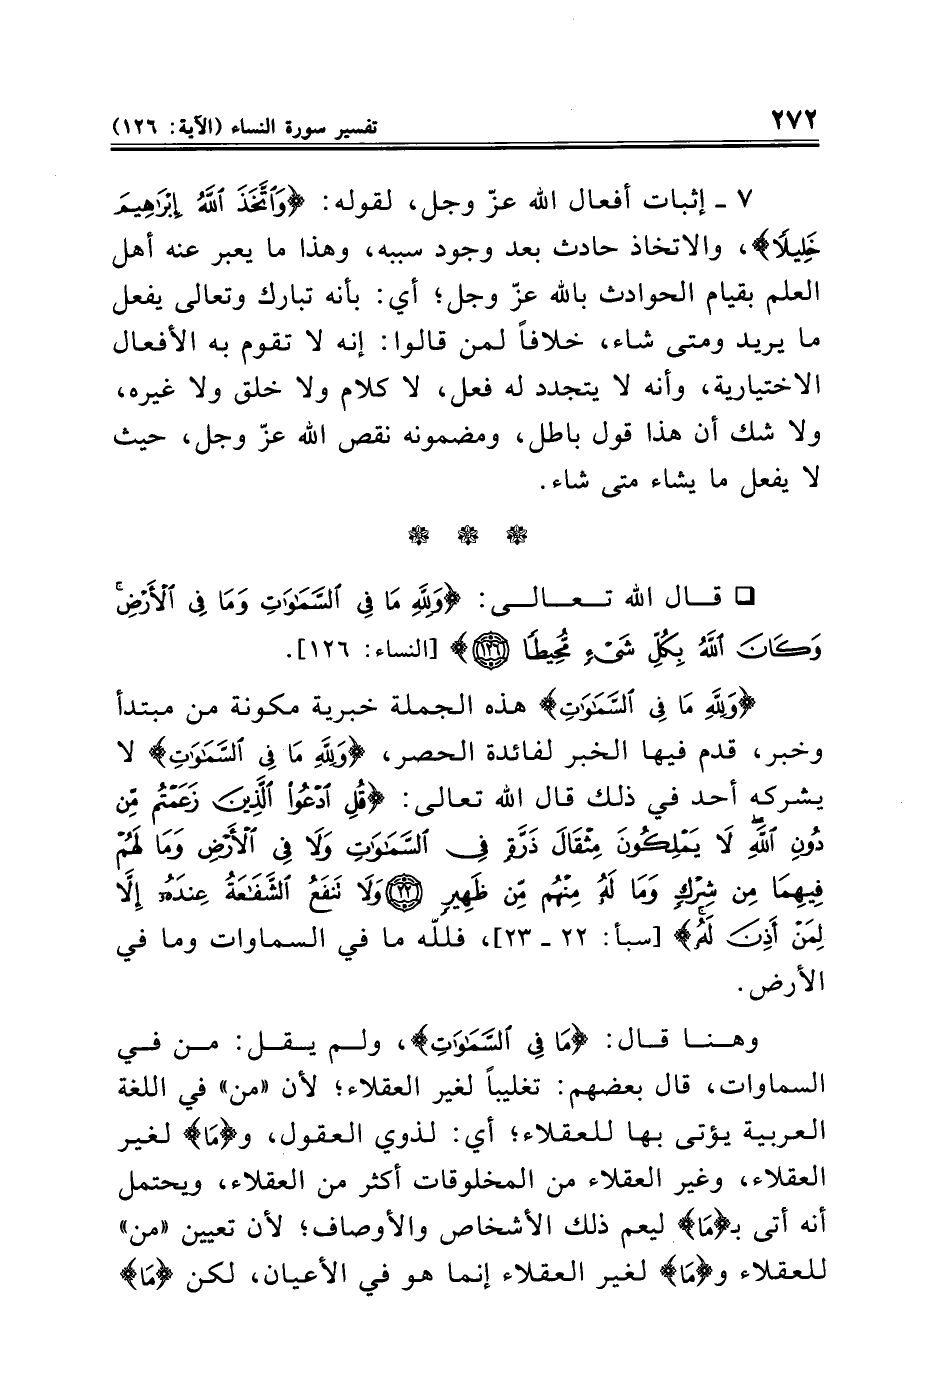 ٢٧٢
تفسير سورة النساء (الآية: ١٢٦)
٧ ـ إثبات أفعال الله عزّ وجل، لقوله: ﴿وَٱتَّخَذَ ٱللَّهُ إِبْرَٰهِيمَ
خَلِيلًا﴾، والاتخاذ حادث بعد وجود سببه، وهذا ما يعبر عنه أهل
العلم بقيام الحوادث بالله عزّ وجل؛ أي: بأنه تبارك وتعالى يفعل
ما يريد ومتى شاء، خلافاً لمن قالوا: إنه لا تقوم به الأفعال
الاختيارية، وأنه لا يتجدد له فعل، لا كلام ولا خلق ولا غيره،
ولا شك أن هذا قول باطل، ومضمونه نقص الله عزّ وجل، حيث
لا يفعل ما يشاء متى شاء.
❁ ❁ ❁
❑ قـال الله تـعـالـى: ﴿وَلِلَّهِ مَا فِى ٱلسَّمَٰوَٰتِ وَمَا فِى ٱلْأَرْضِۚ
وَكَانَ ٱللَّهُ بِكُلِّ شَىْءٍ مُّحِيطًا ١٢٦﴾ [النساء: ١٢٦].
﴿وَلِلَّهِ مَا فِى ٱلسَّمَٰوَٰتِ﴾ هذه الجملة خبرية مكونة من مبتدأ
وخبر، قدم فيها الخبر لفائدة الحصر، ﴿وَلِلَّهِ مَا فِى ٱلسَّمَٰوَٰتِ﴾ لا
يشركه أحد في ذلك قال الله تعالى: ﴿قُلِ ٱدْعُوا۟ ٱلَّذِينَ زَعَمْتُم مِّن
دُونِ ٱللَّهِۖ لَا يَمْلِكُونَ مِثْقَالَ ذَرَّةٍ فِى ٱلسَّمَٰوَٰتِ وَلَا فِى ٱلْأَرْضِ وَمَا لَهُمْ
فِيهِمَا مِن شِرْكٍ وَمَا لَهُۥ مِنْهُم مِّن ظَهِيرٍ ٢٢ وَلَا تَنفَعُ ٱلشَّفَٰعَةُ عِندَهُۥٓ إِلَّا
لِمَنْ أَذِنَ لَهُۥۚ﴾ [سبأ: ٢٢ ـ ٢٣]، فللّه ما في السماوات وما في
الأرض.
وهـنـا قـال: ﴿مَا فِى ٱلسَّمَٰوَٰتِ﴾، ولـم يـقـل: مـن فـي
السماوات، قال بعضهم: تغليباً لغير العقلاء؛ لأن «من» في اللغة
العربية يؤتى بها للعقلاء؛ أي: لذوي العقول، و﴿مَا﴾ لغير
العقلاء، وغير العقلاء من المخلوقات أكثر من العقلاء، ويحتمل
أنه أتى بـ﴿مَا﴾ ليعم ذلك الأشخاص والأوصاف؛ لأن تعيين «من»
للعقلاء و﴿مَا﴾ لغير العقلاء إنما هو في الأعيان، لكن ﴿مَا﴾